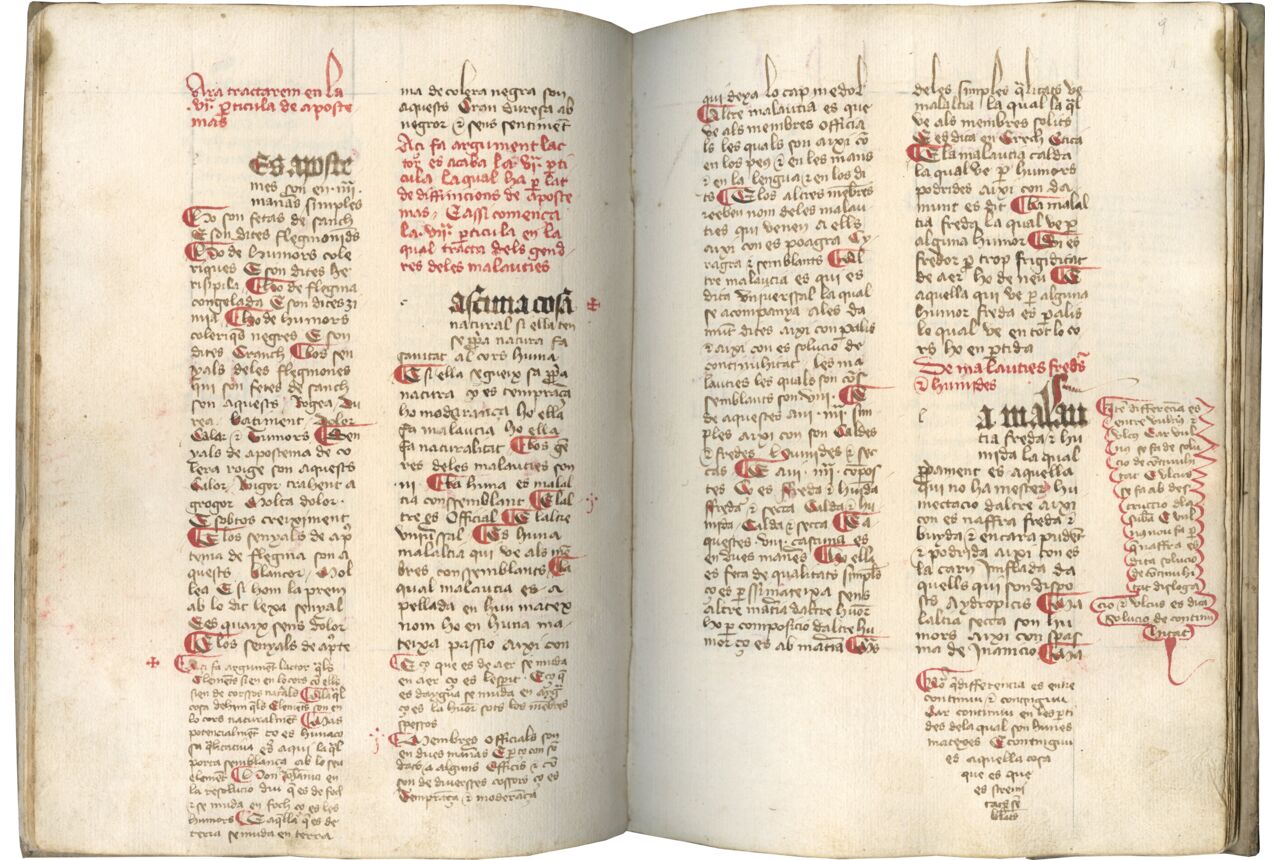 Ara tractarem en la
.vij. perticula de aposte
mas
Es aposte
mes son en .iiij.
maneras simples
Ho son fetas de sanch
E son dites flegmonids
Ho de humors cole
riques E son dites he
risipila Ho de flegma
congelada E son dites zi
mia Ho de humors
colerics negres E son
dites Cranch Los sen
yals deles flegmones
qui son fetes de sanch
son aquests Rogea Du
rea Batiment Dolor
Calor & Tumors E sen
yals de apostema de co
lera roige son aquests
Calor vigor trahent a
grogor Molta dolor
E sobtos creximent
E los senyals de apos
tema de flegma son a
quests Blancor Mol
lea E si hom la prem
ab lo dit lexa senyal
E es quaix sens dolor
E los senyals de aposte
Aci fa argument lactor q̄ls
Elements sien en lo cors co ells
sien de corsos
cosa dehim q̄ls Elements son en
lo cors naturalment Mas
potencialment co es
aqui
ab lo seu
element
la resolucio diu q̄ es de foch
& se muda en foch co es les
humors E aq̄lla q̄ es de
terra se muda en terra
ma de colera negra son
aquests Gran duresa ab
negror & sens sentiment
Aci fa argument lac
tor es acaba la .vij. p̄ti
cula la qual ha p̄lat
de diffincions de aposte
mas E assi comença
la .viij. perticula en la
qual tracta dels gend
res deles malauties
ascuna cosa
natural si ella ten
se p̄pia natura fa
sanitat al cors huma
E si ella segueix sa p̄pia
natura ço es tempraça
ho modaranca ho ella
fa malautia ho ella
fa naturalitat Los ge
res deles malauties son
.iij. La huna es malal
tia conssemblant E lal
tre es Official E laltre
universal Es huna
malaltia qui ve als me
bres conssemblants La
qual malautia es a
pellada en hun matex
nom ho en huna ma
teixa passio axi con
E ço que es de aer se muda
en aer ço es lesperit E ço q̄
es daygua se muda en
ço es la humor sots los mēbres
spessos
Membres Officials son
en dues maneras E
a alguns Officis
son de diversses ço es
Tempraça & moderaça
qui dexa lo cap me dol
Altre malautia es que
ve als membres officia
ls les quals son axi co
en los peus & en les mans
& en la lengua & en los di
ts E los altres mēbres
reeben nom deles malau
ties qui venen a ells
axi con es poagra Cy
ragra & semblants E al
tre malautia es qui es
dita universal la qual
se acompanya ales da
mūt dites axi con palis
& axi con es solucio de
continuhitat les ma
lauties les quals son cōs
semblants son .viij. E
de aquestes a vi .iiij. sim
ples axi con son Caldes
& fredes humides & sec
cas E a vi .iiij. cōpos
tes Co es freda & humida
freda & secca Calda & hu
mida Calda & secca E a
questes .viij. cascuna es
en dues maneres Ho ella
es feta de qualitats simples
ço es p̄ ssi mateixa sens
altre materia daltre humor
ho p̄ composicio daltre hu
mor ço es ab matia Mas
deles simples q̄litats ve
malaltia la qual la q̄l
ve als membres solits
E es dita en Grech Etica
E la malautia calda
la qual ve p̄ humors
podrides axi con da
munt es dit E la malal
tia freda la qual ve p̄
alguna humor O si es
fredor p̄ trop frigiditat
de aer ho de neu E
aquella qui ve p̄ alguna
humor freda es palis
lo qual ve en tot lo co
rs ho en p̄tida
De malauties fredes
& humides
a malau
tia freda & hu
mida la qual
p̄piament es aquella
qui no ha mester hu
mectacio daltre axi
con es naffra freda &
humida & encara pudent
& podrida axi con es
la carn Inflada da
quells qui son dispo
sts a ydropicis E ma
laltia secca son hu
mors axi con spas
ma de Inanicio E ma
No differencia es entre
continuu & contiguu
Car continuu en les p̄ti
des dela qual son hunes
mateyes E contiguu
es aquella cosa
que es que
es stremi
tats se
blats
Ite differencia es
entre vulnus &
vlcus Car vul
nus se fa de solu
cio de cōtinuhi
tat E vlcus
se fa ab des
truccio dla
E vul
p̄
naffra es
dita solucio
de cōtinuhi
tat
& vlcus es dita
Solucio de continu
hitat
9